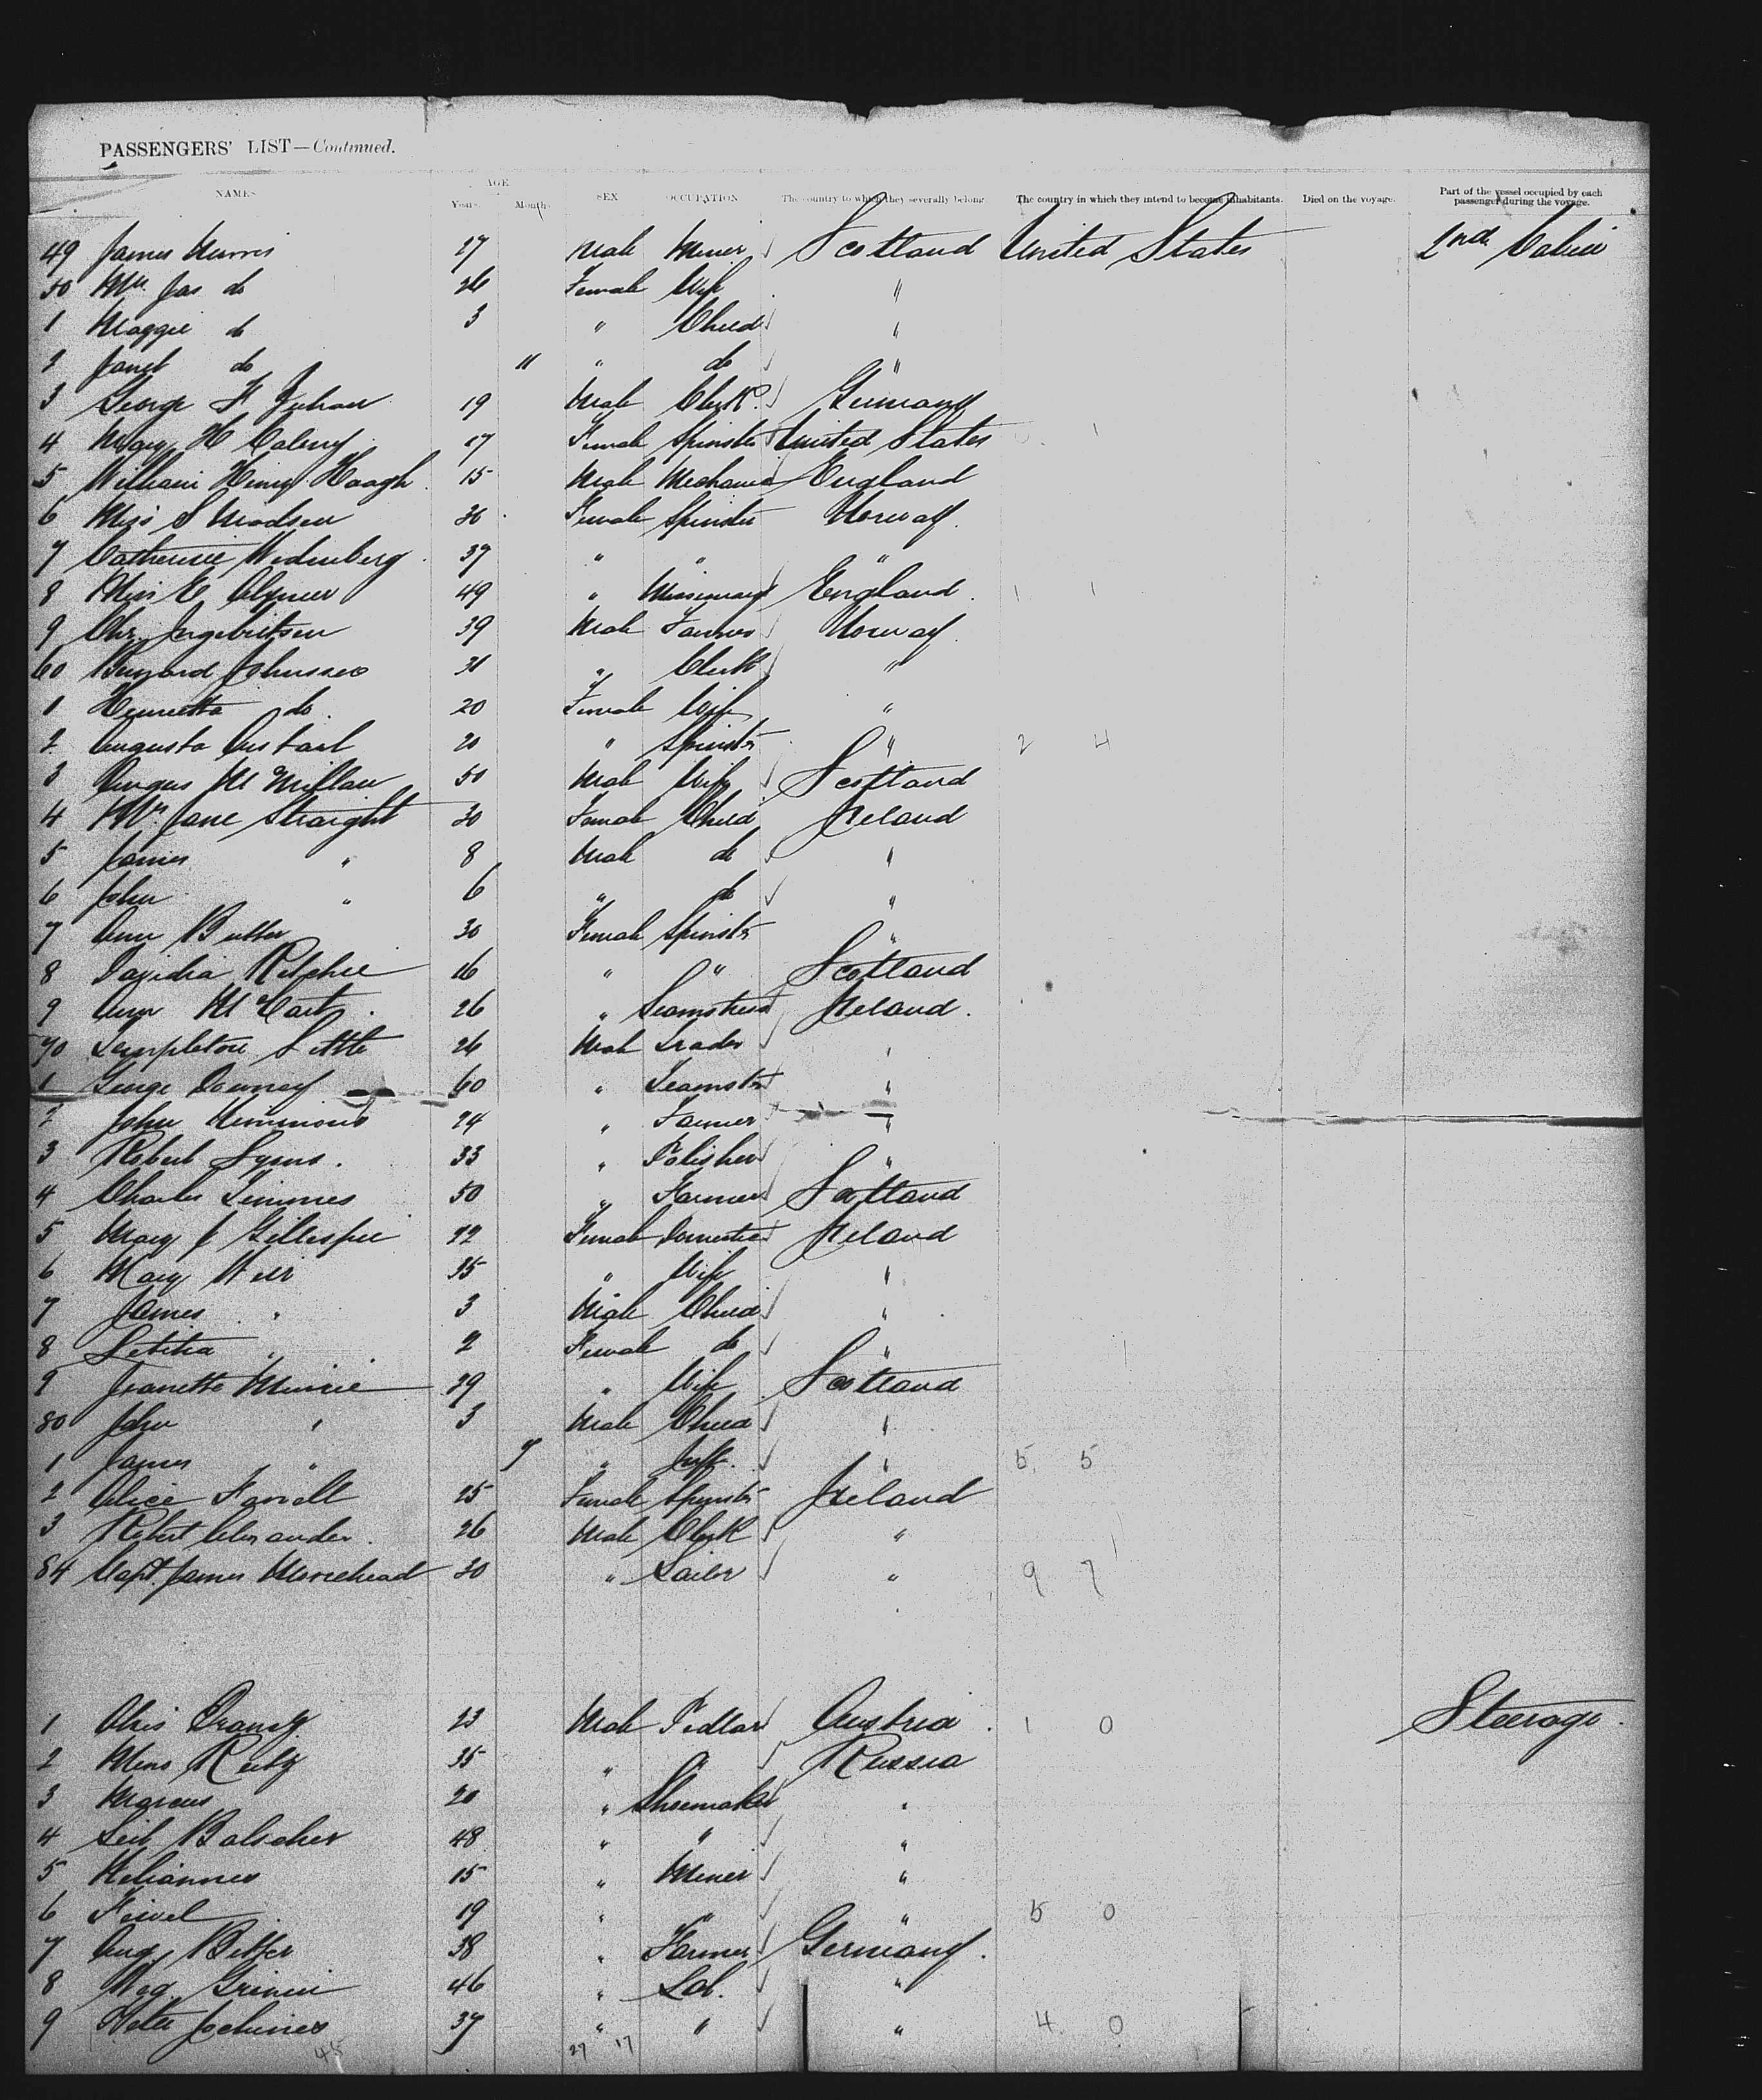 PASSENGERS' LIST—Continued.
NAMES AGE Years Months SEX OCCUPATION The country to which they severally belong. The country in which they intend to become inhabitants. Died on the voyage. Part of the vessel occupied by each passenger during the voyage.
49 James 27 Male Miner Scotland United States 2nd Cabin
50 Mrs. Jas do 26 Female Wife "
1 Maggie do 3 " Child "
2 Janet do 11 " do "
3 George F 19 Male Clerk Germany
4 Mary H 17 Female Spinster United States
5 William Henry Haagh 15 Male Mechanic England
6 Miss S Madsen 36 Female Spinster Norway
7 Catherine Wedenberg 39 " " "
8 Miss E 49 " Missionary England 1 1
9 Chr. Ingebritsen 39 Male Farmer Norway
60 Johnsen 31 " Clerk "
1 Henrietta do 20 Female Wife "
2 Augusta 20 " Spinster " 2 4
3 Angus McMillan 50 Male Wife Scotland
4 Mrs. Jane Straight 30 Female Child Ireland
5 James " 8 Male do "
6 John " 6 " do "
7 Ann 30 Female Spinster "
8 Davidia Ritchie 16 " " Scotland
9 Ann McCart 26 " Seamstress Ireland.
70 Templeton Little 26 Male Trader "
1 George Downey 60 " Teamster "
2 John 24 " Farmer "
3 Robert Lyons. 33 " Polisher "
4 Charles Timmes 50 " Farmer Scotland
5 Mary J Gillespie 22 Female Domestic Ireland
6 Mary Weir 35 " Wife "
7 James " 3 Male Child "
8 Letitia " 2 Female do "
9 Jeanette 29 " Wife Scotland
80 John " 3 Male Child "
1 James " 7 " Inft. " 5 5
2 Alice Farrell 25 Female Spinster Ireland
3 Robert Alexander 26 Male Clerk "
84 Capt. James Morehead 30 " Sailor " 9 7
1 23 Male Pedlar Austria 1 0 Steerage.
2 35 " " Russia
3 Marcus 20 " Shoemaker "
4 Leib Balscher 48 " " "
5 15 " Miner "
6 Feivel 19 " " " 5 0
7 Aug. 38 " Farmer Germany.
8 46 " Lab. "
9 Peter Jochimes 37 " " " 4 0
27 17